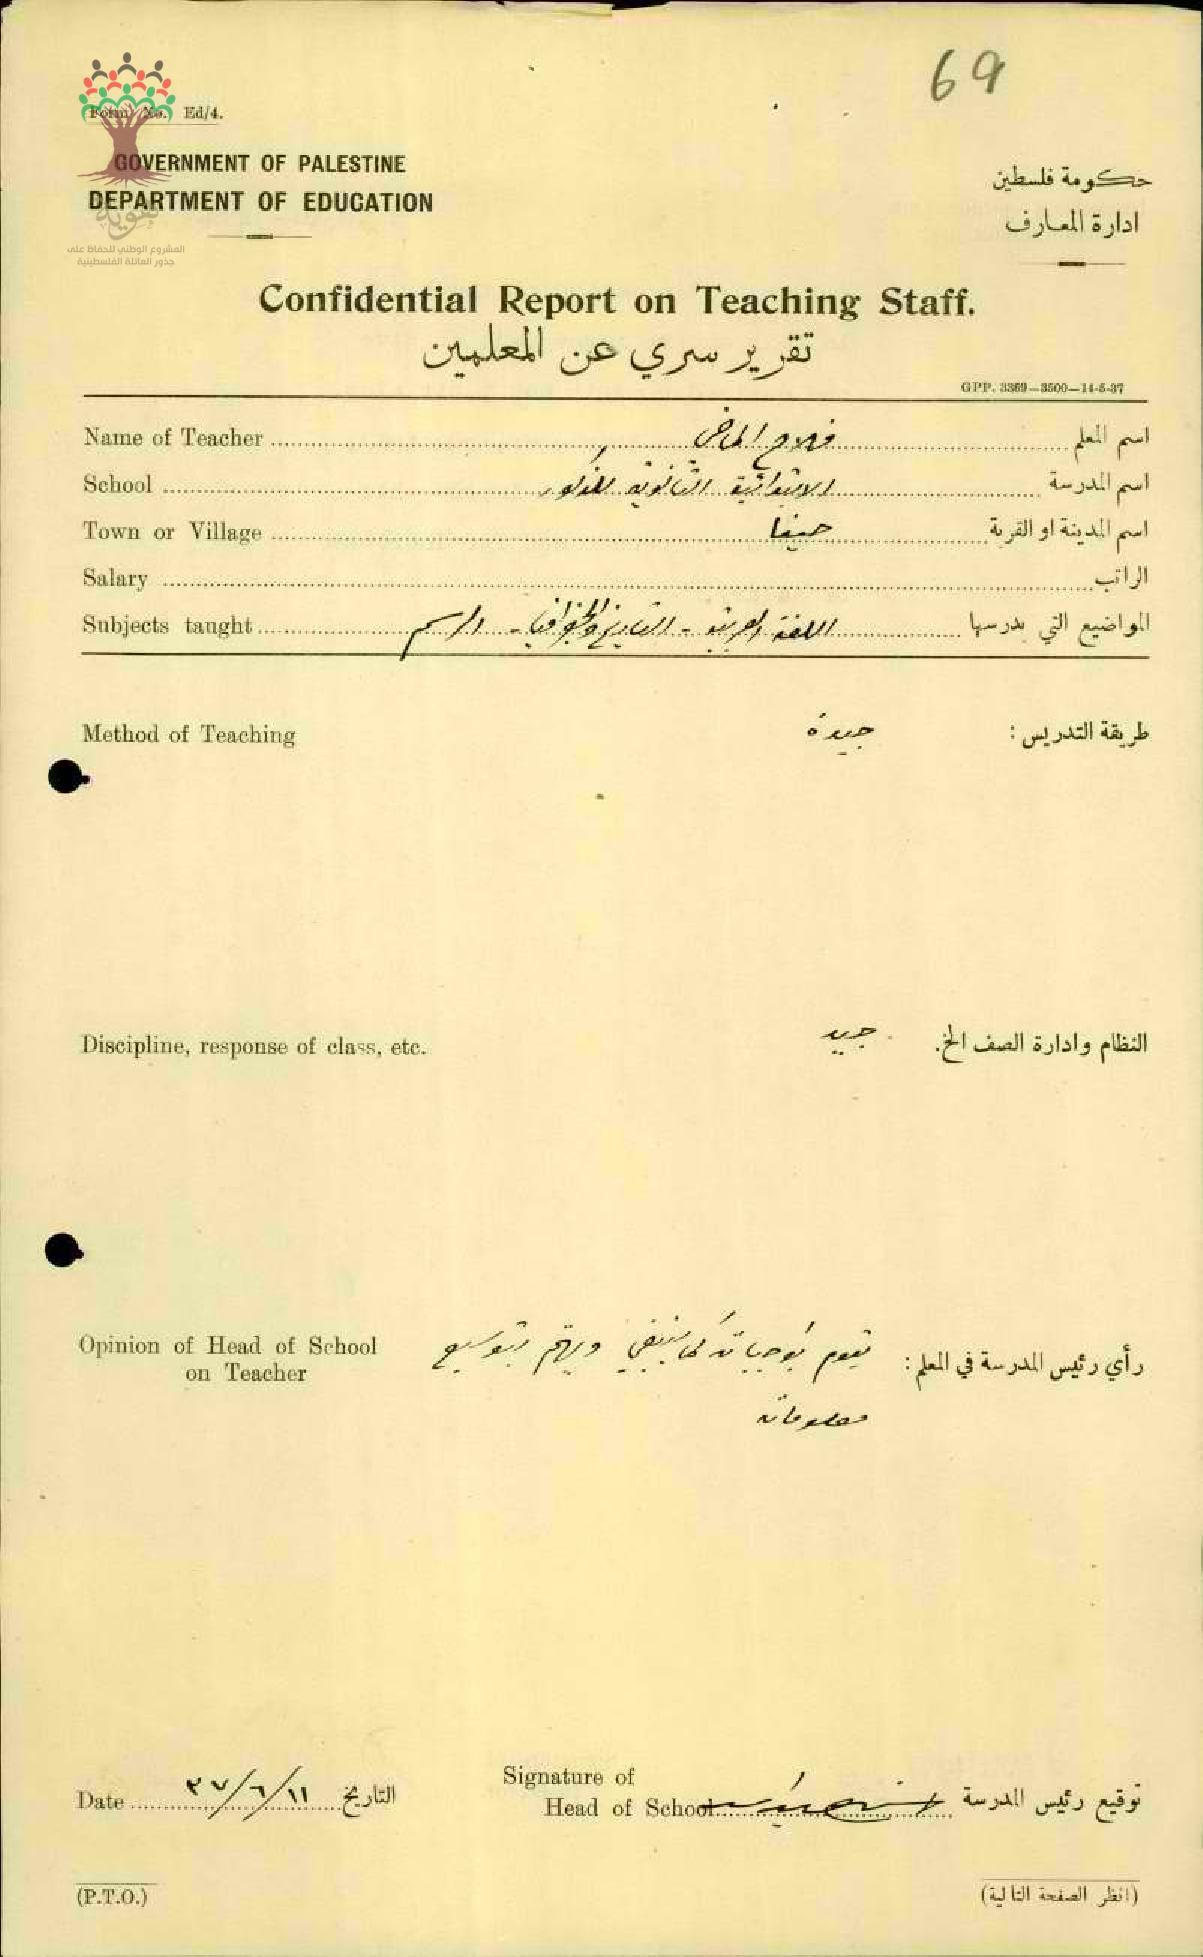 69
Form No. Ed/4.
GOVERNMENT OF PALESTINE
DEPARTMENT OF EDUCATION
هوية
المشروع الوطني للحفاظ على
جذور العائلة الفلسطينية
حكومة فلسطين
ادارة المعارف
Confidential Report on Teaching Staff.
تقرير سري عن المعلمين
GPP. 3369—3500—14-5-37
Name of Teacher الماضي اسم المعلم
School الابتدائية الثانوية للذكور اسم المدرسة
Town or Village حيفا اسم المدينة او القرية
Salary الراتب
Subjects taught اللغة العربية - التاريخ والجغرافيا - الرسم المواضيع التي يدرسها
Method of Teaching جيدة طريقة التدريس :
Discipline, response of class, etc. جيد النظام وادارة الصف الخ.
Opinion of Head of School
on Teacher
يقوم بواجباته كما ينبغي ويهتم بتوسيع رأي رئيس المدرسة في المعلم :
معلوماته
Date ٣٧/٦/١١ التاريخ
Signature of
Head of School توقيع رئيس المدرسة
(P.T.O.) (انظر الصفحة التالية)